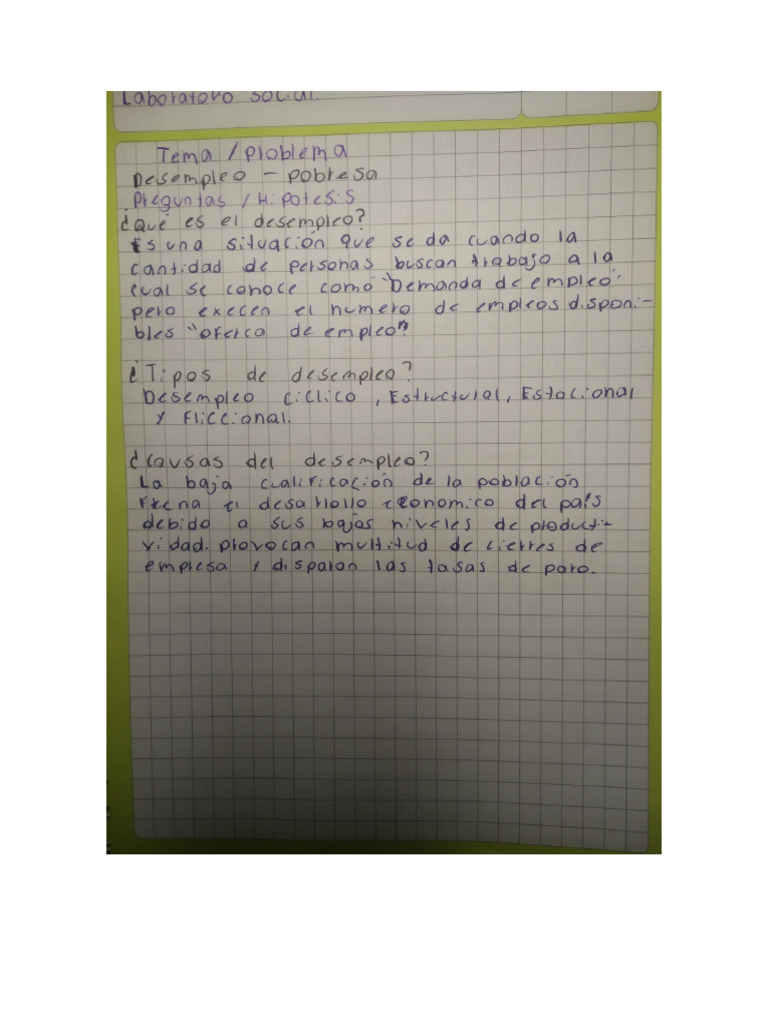 Laboratoro social.
Tema / Problema
Desempleo - pobresa
Preguntas / Hipotesis
¿Qué es el desempleo?
Es una situación que se da cuando la
cantidad de personas buscan trabajo a la
cual se conoce como "Demanda de empleo"
pero execen el numero de empleos disponi-
bles "oferca de empleo"
¿Tipos de desempleo?
Desempleo ciclico, Estructural, Estacional
y Friccional.
¿Causas del desempleo?
La baja cualificación de la población
frena el desarrollo economico del país
debido a sus bajos niveles de producti-
vidad. provocan multitud de cierres de
empresa y disparon las tasas de paro.